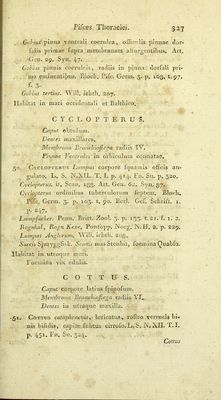 Pisces Thoracici. 327
Gobius pinna ventrali coerulea, ossiculis pinnae dor-
salis primae supra membranam assurgentibus. Art.
Gen. 29. Syn. 47.
Gobius pinnis coeruleis, radiis in pinna dorsali pri-
ma eminentibus. Bloch. Pisc. Germ. 3. p. 169. t. 97.
f. 3.
Gobius tertius. Will. ichth. 207.
Habitat in mari occidentali et Balthico.
CYCLOPTERUS.
Caput obtusum.
Dentes maxillares.
Membrana Branchiostega radiis IV.
Pinnae Ventrales in orbiculum connatae.
50. Cyclopterus Lumpus corpore squamis osseis an-
gulato. L. S. N. XII. T. I. p. 414. Fn. Su. p. 320.
Cyclopterus. it. Scan. 188. Art. Gen. 62. Syn. 87.
Cyclopterus ordinibus tuberculorum septem. Bloch.
Pisc. Germ. 3. p. 103. t. 90. Berl. Ges. Schrift. 1.
p. 247.
Lumpsucker. Penn. Britt. Zool. 3. p. 133. t. 21. f. 1. 2.
Rognkal, Rogn Kexe, Pontopp. Norg. N. H. 2. p. 229.
Lumpus Anglorum. Will. ichth. 208.
Suecis Sjurygg fisk. Scanis mas Stenbit, foemina Quabso.
Habitat in utroque mari.
Foemina vix edulis.
COTTUS.
Caput corpore latius spinosum.
Membrana Branchiostega radiis VI.
Dentes in utraque maxilla.
51. Cottus cataphractus, loricatus, rostro verrucis bi-
nis bifidis, capite subtus cirroso. L. S. N. XII. T. I.
p. 451. Fn. Su. 324.
Cottus